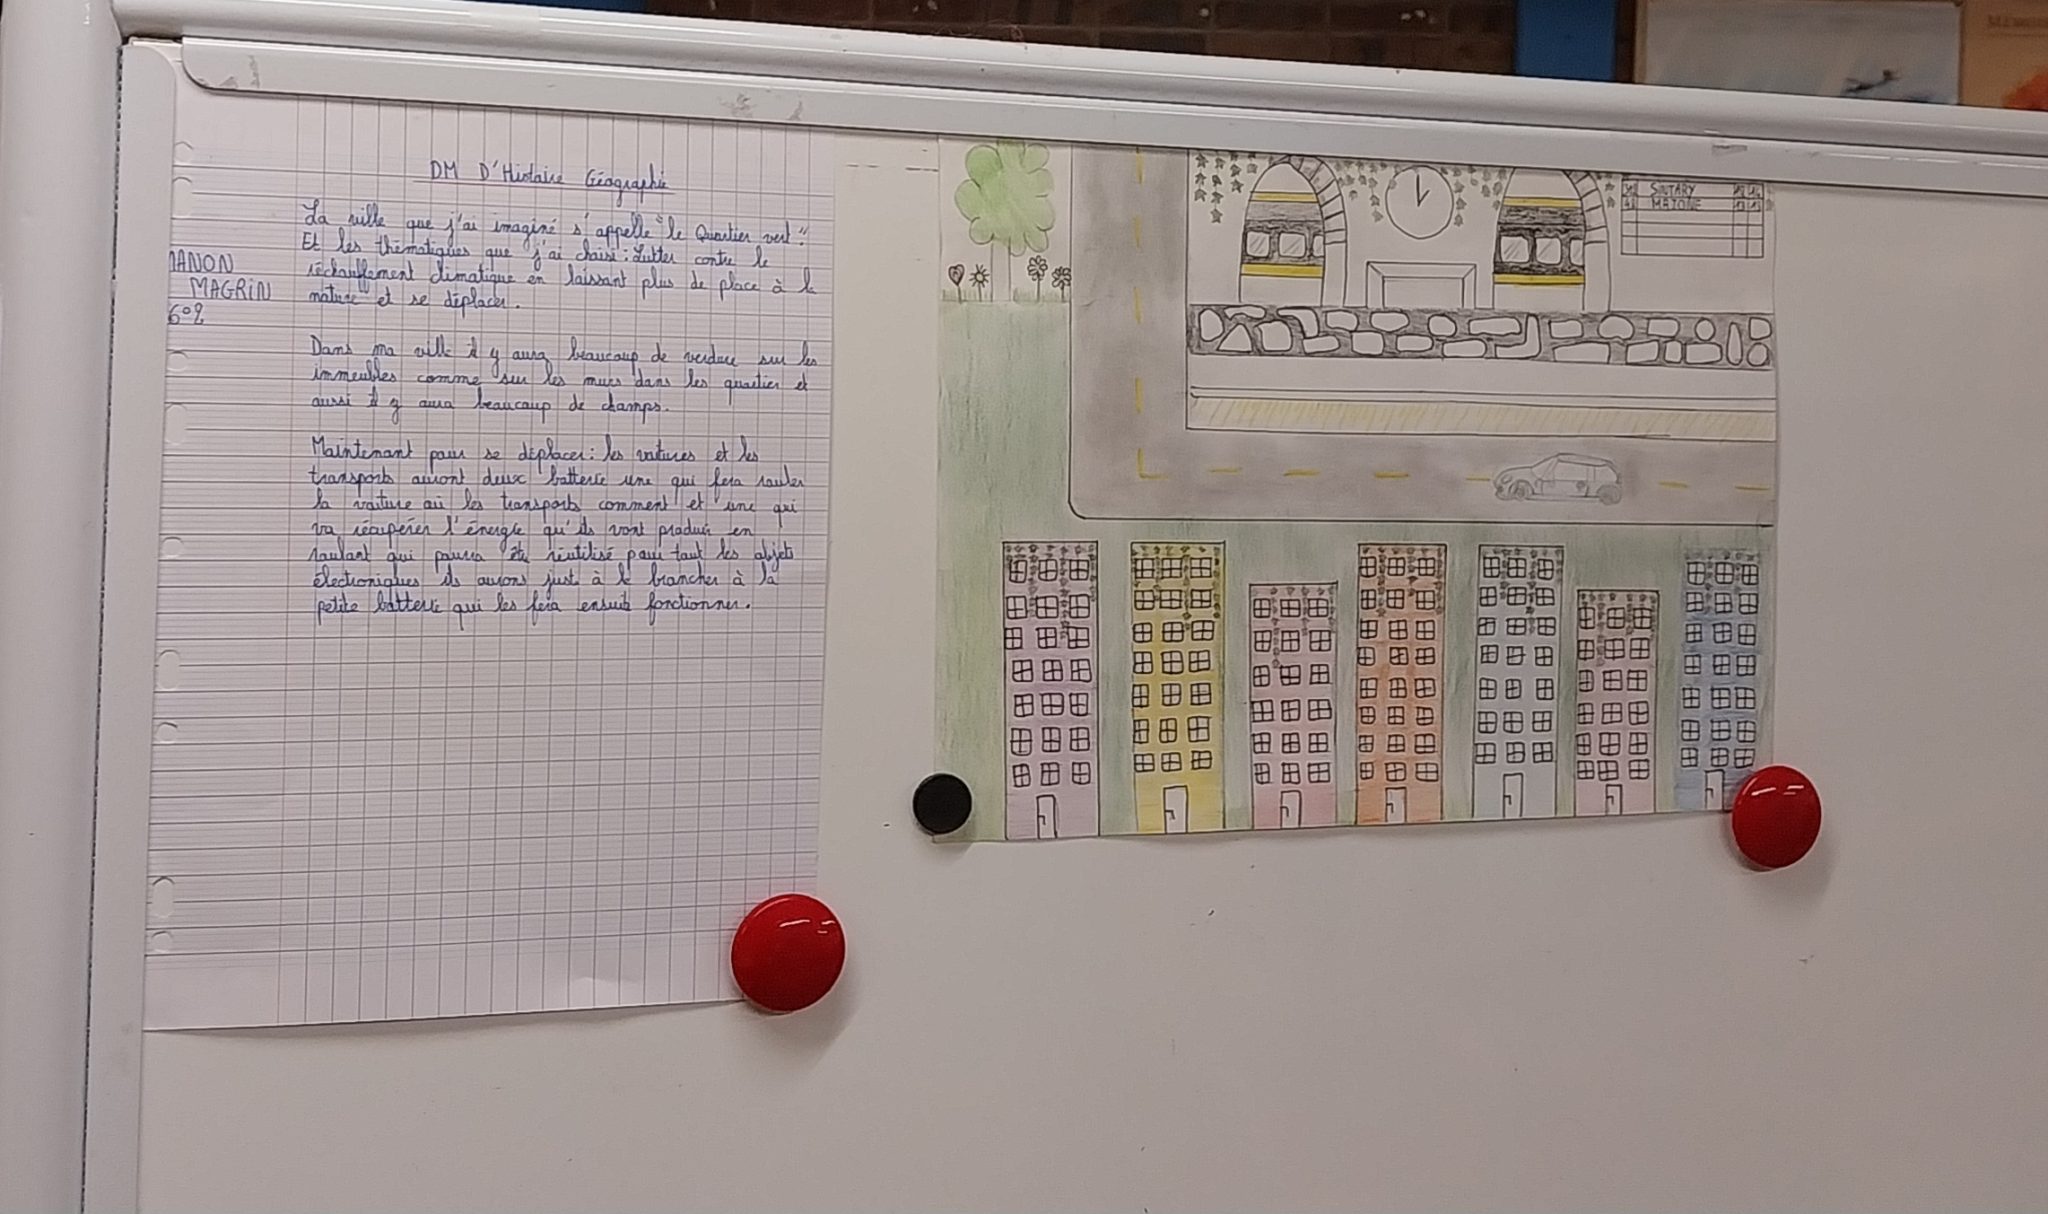 DM D'Histoire Géographie
La ville que j'ai imaginé s'appelle "le Quartier vert".
Et les thématiques que j'ai choisi : Lutter contre le
réchauffement climatique en laissant plus de place à la
nature et se déplacer.
MANON
MAGRIN
6°2
Dans ma ville il y aura beaucoup de verdure sur les
immeubles comme sur les murs dans les quartier et
aussi il y aura beaucoup de champs.
Maintenant pour se déplacer : les voitures et les
transports auront deux batterie une qui fera rouler
la voiture où les transports comment et une qui
va récupérer l'énergie qu'ils vont produir en
roulant qui pourra être réutilisé pour tout les objets
électroniques ils aurons just à le brancher à la
petite batterie qui les fera ensuite fonctionner.
SINTARY
MAZONE